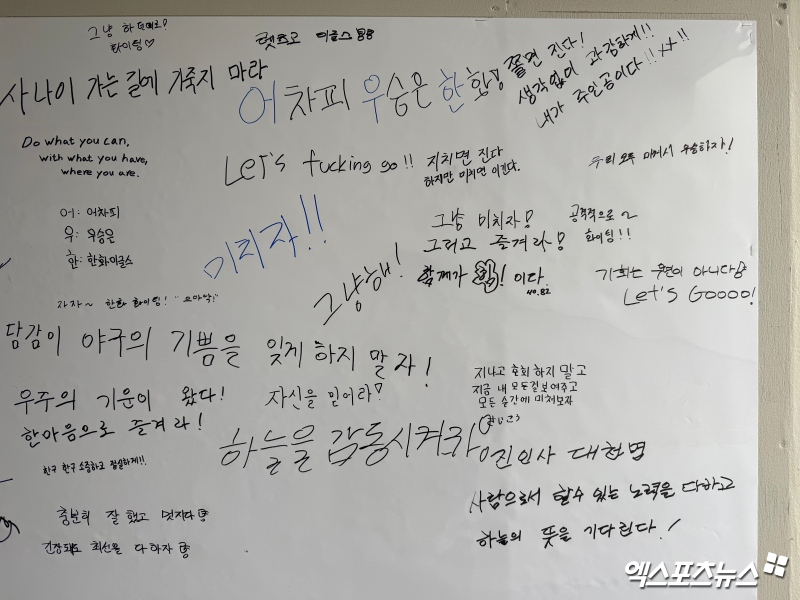 그냥 하던대로?
화이팅♡
렛츠고 이글스
사나이 가는 길에 기죽지 마라
어차피 우승은 한화!
쫄면 진다!
생각없이 과감하게!!
내가 주인공이다!!
Do what you can,
with what you have,
where you are.
Let's fucking go!!
지치면 진다
하지만 미치면 이긴다.
우리 모두 미쳐서 우승하자!
어: 어차피
우: 우승은
한: 한화이글스
미치자!!
그냥해!
그냥 미치자!
그리고 즐겨라!
함께가 힘! 이다.
40.82
공격적으로~
화이팅!!
기회는 우연이 아니다
Let's Goooo!
자자~ 한화 화이팅!
부담감이 야구의 기쁨을 잊게 하지 말자!
우주의 기운이 왔다!
한마음으로 즐겨라!
자신을 믿어라?
지나고 후회 하지 말고
지금 내 모든걸 보여주고
모든 순간에 미쳐보자
하늘을 감동시켜라.
진인사 대천명
사람으로서 할수 있는 노력을 다하고
하늘의 뜻을 기다린다.!
한구 한구 소중하고 절실하게!!
충분히 잘 했고 멋지다
긴장돼도 최선을 다하자
엑스포츠뉴스